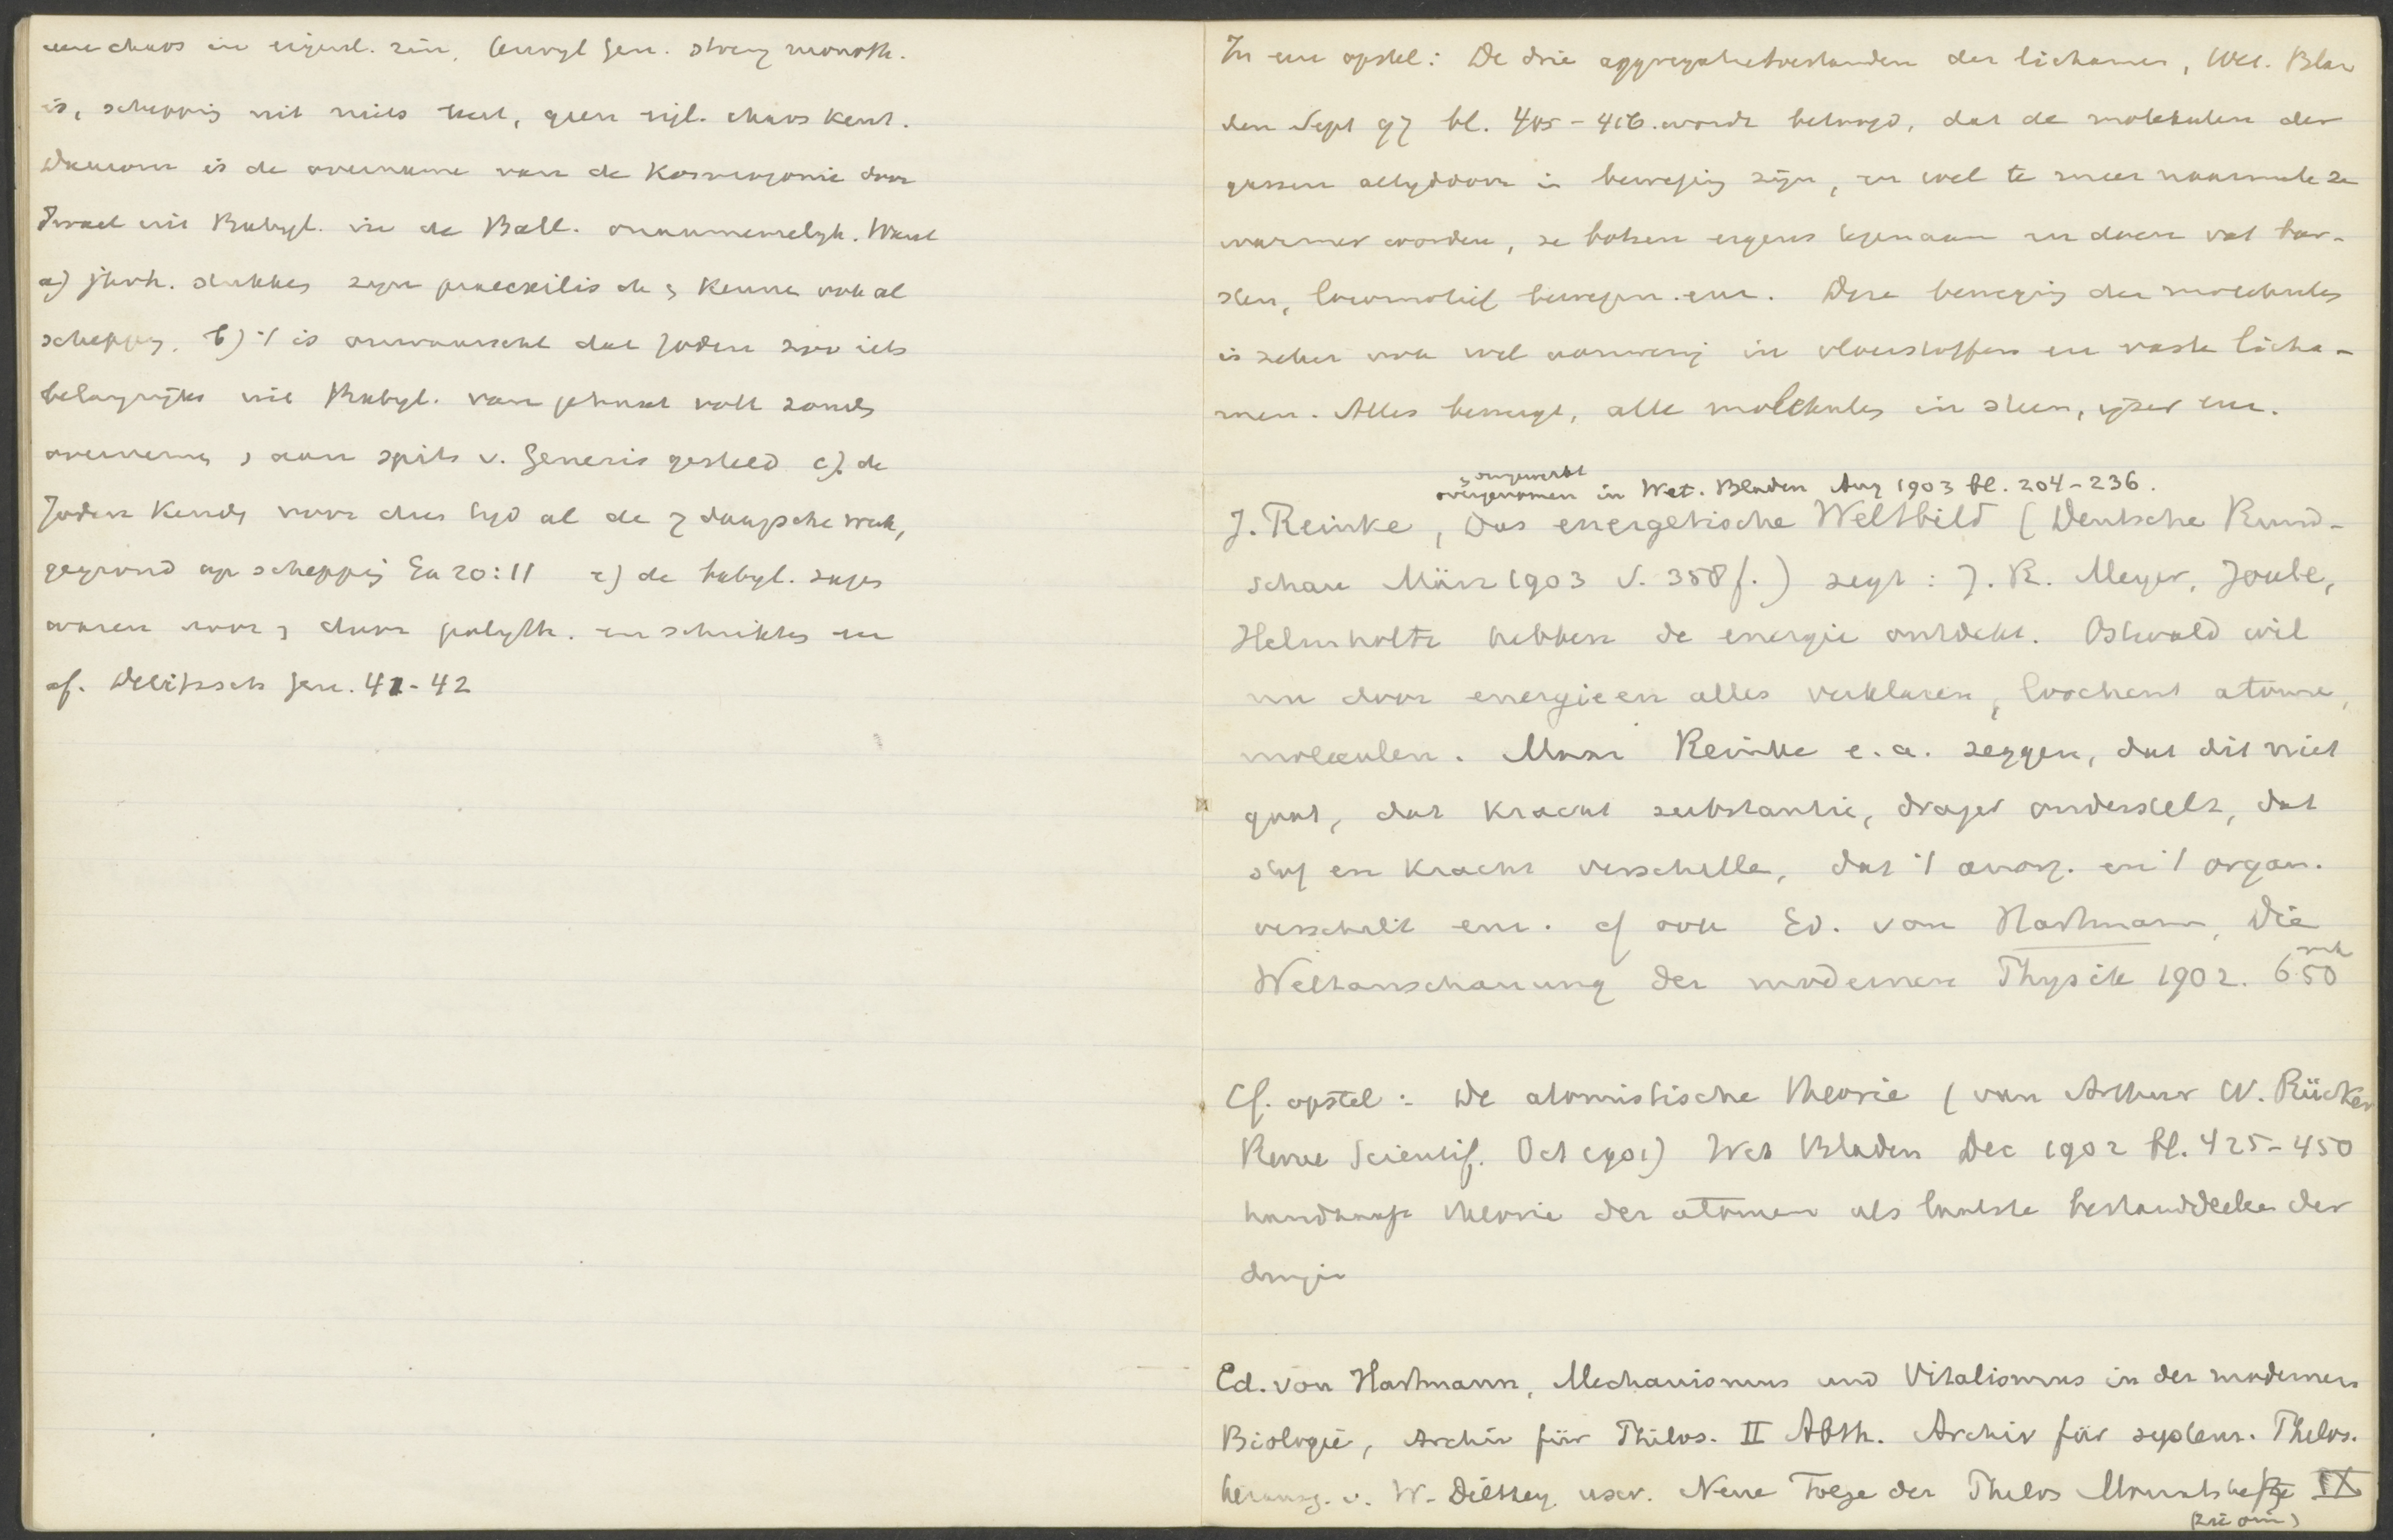 een chaos in eigenl. zin, terwyl Gen. streng monoth.
is, schepping uit niets leert, geen eigl. chaos kent.
Daarom is de overname van de Kosmogonie door
Israel uit Babyl. in de Ball. onaannemelyk. Want
a) jhvh. stukken zyn praeexilisch en kennen ook al
schepping. b) 't is onwaarsch. dat Joden zoo iets
belangrijks uit Babyl. van volk zouden
overnemen en aan spits v. Genesis gesteld c) de
Joden kenden voor dien tyd al de 7 daagsche week,
gegrond op schepping Ex 20:11 e) de babyl. sages
waren voor door polyth. en
cf. Delitzsch Gen. 41-42
In een opstel: De drie aggregatietoestanden der lichamen, Wet. Bla
den Sept 97 bl. 405-416. wordt betoogd, dat de molekulen der
gassen altyddoor in beweging zijn, en wel te meer naarmate ze
warmer worden, ze botsen ergens tegenaan en doen vat bar-
sten, locomotief bewegen. enz. Deze beweging der moleculen
is zeker ook wel aanwezig in vloeistoffen en vaste licha-
men. Alles beweegt, alle moleculen in steen, yzer enz.
omgewerkt
overgenomen in Wet. Bladen Aug 1903 bl. 204-236.
J. Reinke, Das energetische Weltbild (Deutsche Rund-
schau März 1903 S. 358 f.) zegt: J. R. Meyer, Joule,
Helmholtz hebben de energie ontdekt. Ostwald wil
nu door energieen alles verklaren, loochent atomen,
moleculen. Maar Reinke e. a. zeggen, dat dit niet
gaat, dat kracht substantie, drager onderstelt, dat
stof en kracht verschillen, dat 't anorg. en 't organ.
verschilt enz. cf ook Ed. von Hartmann, Die
Weltanschauung der modernen Physik 1902. 6.50
Cf. opstel: De atomistische theorie (van Arthur W. Rücker
Revue Scientif. Oct 1901) Wet Bladen Dec 1902 bl. 425-450
handhaaft theorie der atomen als laatste bestanddeelen der
dingen
Ed. von Hartmann, Mechanismus und Vitalismus in der modernen
Biologie, Archiv für Philos. II Abth. Archiv für system. Philos.
herausg. v. W. Dilthey usw. Neue Folge der Philos Monatshefte IX
(zie om)